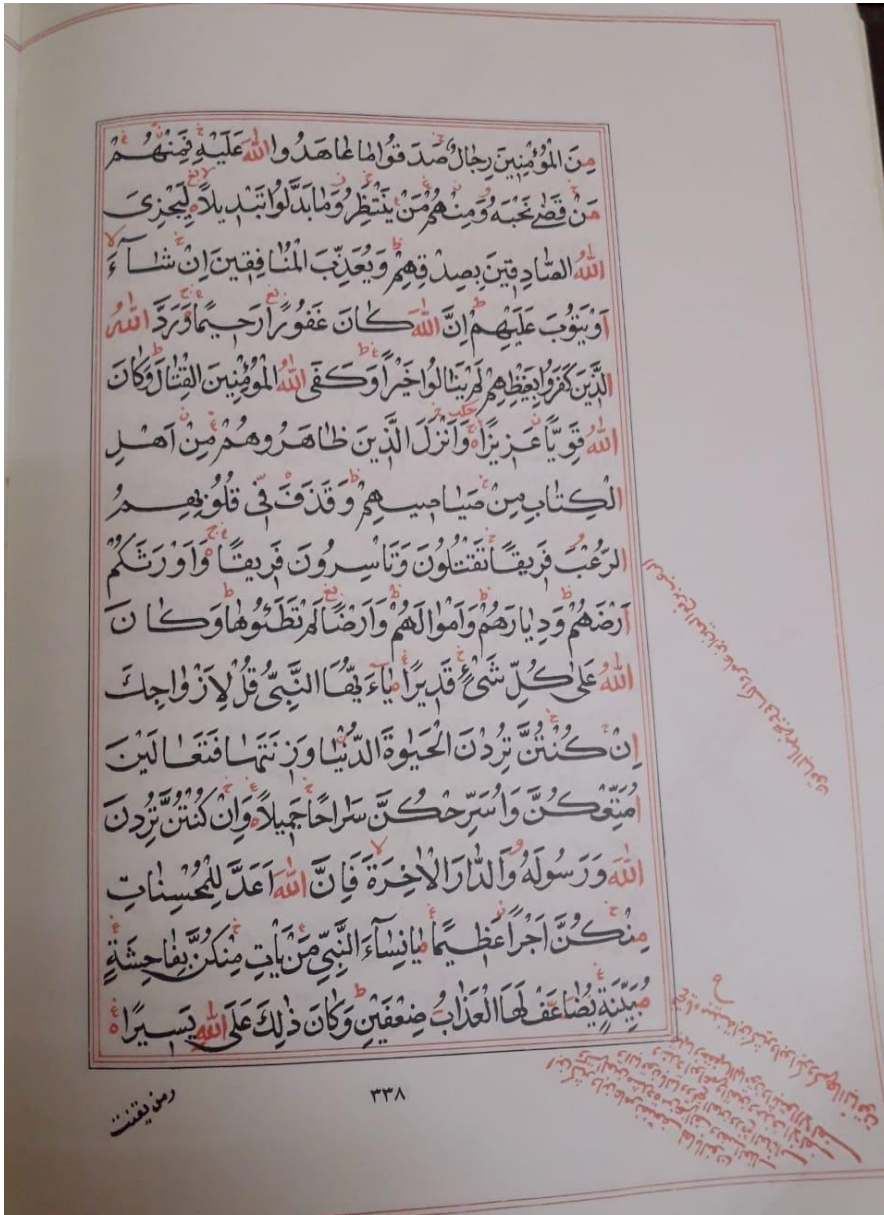 مِنَ الْمُؤْمِنِينَ رِجَالٌ صَدَقُوا مَا عَاهَدُوا اللَّهَ عَلَيْهِ فَمِنْهُمْ
مَنْ قَضٰى نَحْبَهُ وَمِنْهُمْ مَنْ يَنْتَظِرُ وَمَا بَدَّلُوا تَبْدِيلًا لِيَجْزِىَ
اللَّهُ الصَّادِقِينَ بِصِدْقِهِمْ وَيُعَذِّبَ الْمُنَافِقِينَ اِنْ شَآءَ
اَوْ يَتُوبَ عَلَيْهِمْ اِنَّ اللَّهَ كَانَ غَفُورًا رَحِيمًا وَرَدَّ اللَّهُ
الَّذِينَ كَفَرُوا بِغَيْظِهِمْ لَمْ يَنَالُوا خَيْرًا وَكَفَى اللَّهُ الْمُؤْمِنِينَ الْقِتَالَ وَكَانَ
اللَّهُ قَوِيًّا عَزِيزًا وَاَنْزَلَ الَّذِينَ ظَاهَرُوهُمْ مِنْ اَهْلِ
الْكِتَابِ مِنْ صَيَاصِيهِمْ وَقَذَفَ فِى قُلُوبِهِمُ
الرُّعْبَ فَرِيقًا تَقْتُلُونَ وَتَاْسِرُونَ فَرِيقًا وَاَوْرَثَكُمْ
اَرْضَهُمْ وَدِيَارَهُمْ وَاَمْوَالَهُمْ وَاَرْضًا لَمْ تَطَئُوهَا وَكَانَ
اللَّهُ عَلٰى كُلِّ شَىْءٍ قَدِيرًا يَآءَيُّهَا النَّبِىُّ قُلْ لِاَزْوَاجِكَ
اِنْ كُنْتُنَّ تُرِدْنَ الْحَيٰوةَ الدُّنْيَا وَزِينَتَهَا فَتَعَالَيْنَ
اُمَتِّعْكُنَّ وَاُسَرِّحْكُنَّ سَرَاحًا جَمِيلًا وَاِنْ كُنْتُنَّ تُرِدْنَ
اللَّهَ وَرَسُولَهُ وَالدَّارَ الْاٰخِرَةَ فَاِنَّ اللَّهَ اَعَدَّ لِلْمُحْسِنَاتِ
مِنْكُنَّ اَجْرًا عَظِيمًا يَانِسَآءَ النَّبِىِّ مَنْ يَاْتِ مِنْكُنَّ بِفَاحِشَةٍ
مُبَيِّنَةٍ يُضَاعَفْ لَهَا الْعَذَابُ ضِعْفَيْنِ وَكَانَ ذٰلِكَ عَلَى اللَّهِ يَسِيرًا
٣٣٨
ومن يقنت